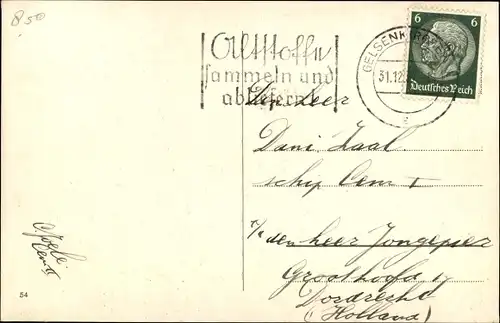 8 50
Altstoffe
sammeln und
abliefern
GELSENKIRCHEN
31.12
6 6
Deutsches Reich
Den Heer
Dani Zaal
schip Cem I
p/a den heer Jongepier
Groothoofd 17
Dordrecht
(Holland)
54